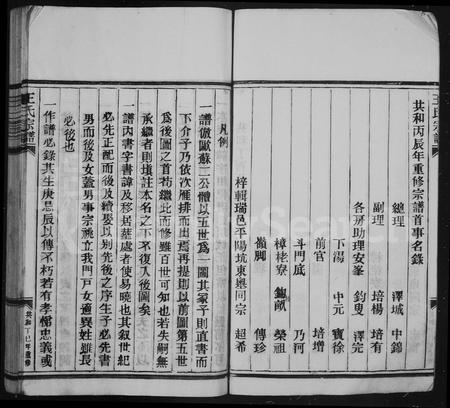 王氏宗譜
共和丙辰年重修宗譜首事名錄
總理 澤城 中錦
副理 培楊 培有
各房助理安峯 鈞叟 澤完
下湯 中元 寶徐
前官 培增
斗門底 乃河
樟栳寮 榮祖
嶺脚 傳珍
梓輯瑞邑平陽坑東塱同宗 超希
凡例
一譜倣歐蘇二公體以五世為一圖其冢子則直書而
下介子乃依次雁排而出焉再提則以前圖第五世
為後圖之首苟繼此而修雖百世可知也若失嗣無
承繼者則填註本名之下不復入後圖矣
一譜內書字書諱及移居葬處者使易曉也其叙世紀
必先正配而後及繼娶以別先後之序生子必先書
男而後及女蓋男事宗祧立我門戶女適異姓雖長
必後也
一作譜必錄其生庚忌辰以傳不朽若有孝悌忠義或
王氏宗譜
共和丁巳年重修